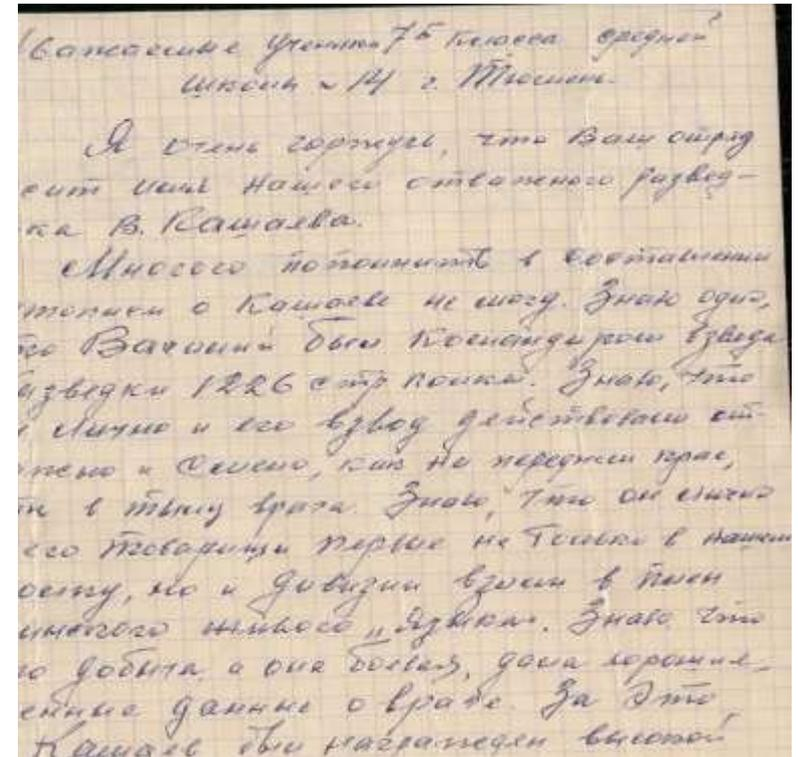 Уважаемые ученики 7Б класса средней
школы № 14 г. Тюмень.
Я очень горжусь, что Ваш отряд
сит имя нашего отважного развед-
ка В. Кашаева.
Многого в составлении
о Кашаеве не могу. Знаю одно,
был командиром взвода
азведки 1226 стр полка. Знаю, что
лично и его взвод действовали от-
жно и смело, как на переднем крае,
в тылу врага. Знаю, что он лично
его товарищи первые не только в нашем
но и дивизии взяли в плен
живого „языка“. Знаю что
добыта, а она боевая, дала
енные данные о враге. За это
Кашаев был награжден высокой